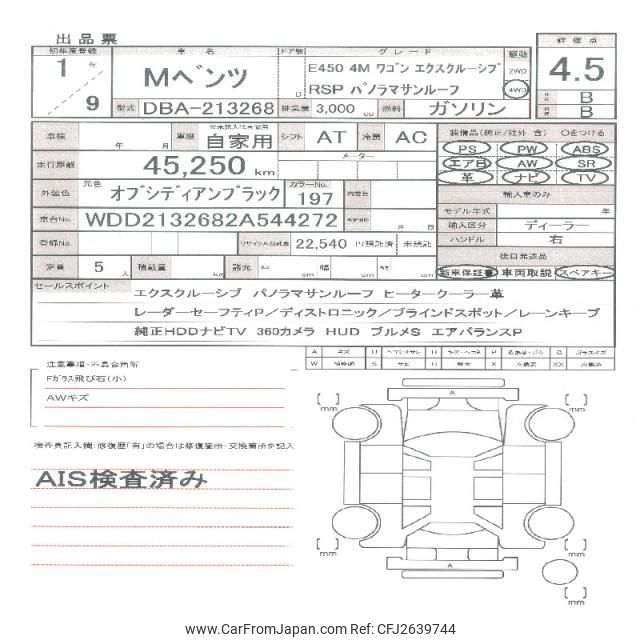 出品票
初年度登録 車名 ドア数 グレード 駆動 評価点
1年 Mベンツ E450 4M ワゴン エクスクルーシブ 2WD 4.5
9 D RSP パノラマサンルーフ 4WD B
型式 DBA-213268 排気量 3,000 cc 燃料 ガソリン B
車検 年 月 車歴 自家用 シフト AT 冷房 AC 装備品(純正/社外 含) Oをつける
走行距離 45,250 km メーター PS PW ABS
エアB AW SR
革 ナビ TV
外装色 元色 オブシディアンブラック カラーNo. 197 輸入車のみ
車台No. WDD2132682A544272 年 月 日 モデル年式 年
輸入区分 ディーラー
登録No. リサイクル預託金 22,540 円 預託済 未預託 ハンドル 右
定員 5人 積載量 kg 諸元 長さ cm 幅 cm 高さ cm 後日発送品
新車保証書 車両取説 スペアキー
セールスポイント
エクスクルーシブ パノラマサンルーフ ヒータークーラー革
レーダーセーフティP/ディストロニック/ブラインドスポット/レーンキープ
純正HDDナビTV 360カメラ HUD ブルメS エアバランスP
A キズ U W S P G X XX
注意事項・不具合箇所
Fガラス飛び石(小)
AWキズ
検査員記入欄:修復歴「有」の場合は修復箇所・交換箇所を記入
AIS検査済み
[ ] mm A [ ] mm
[ ] mm A [ ] mm
[ ] mm
www.CarFromJapan.com Ref: CFJ2639744